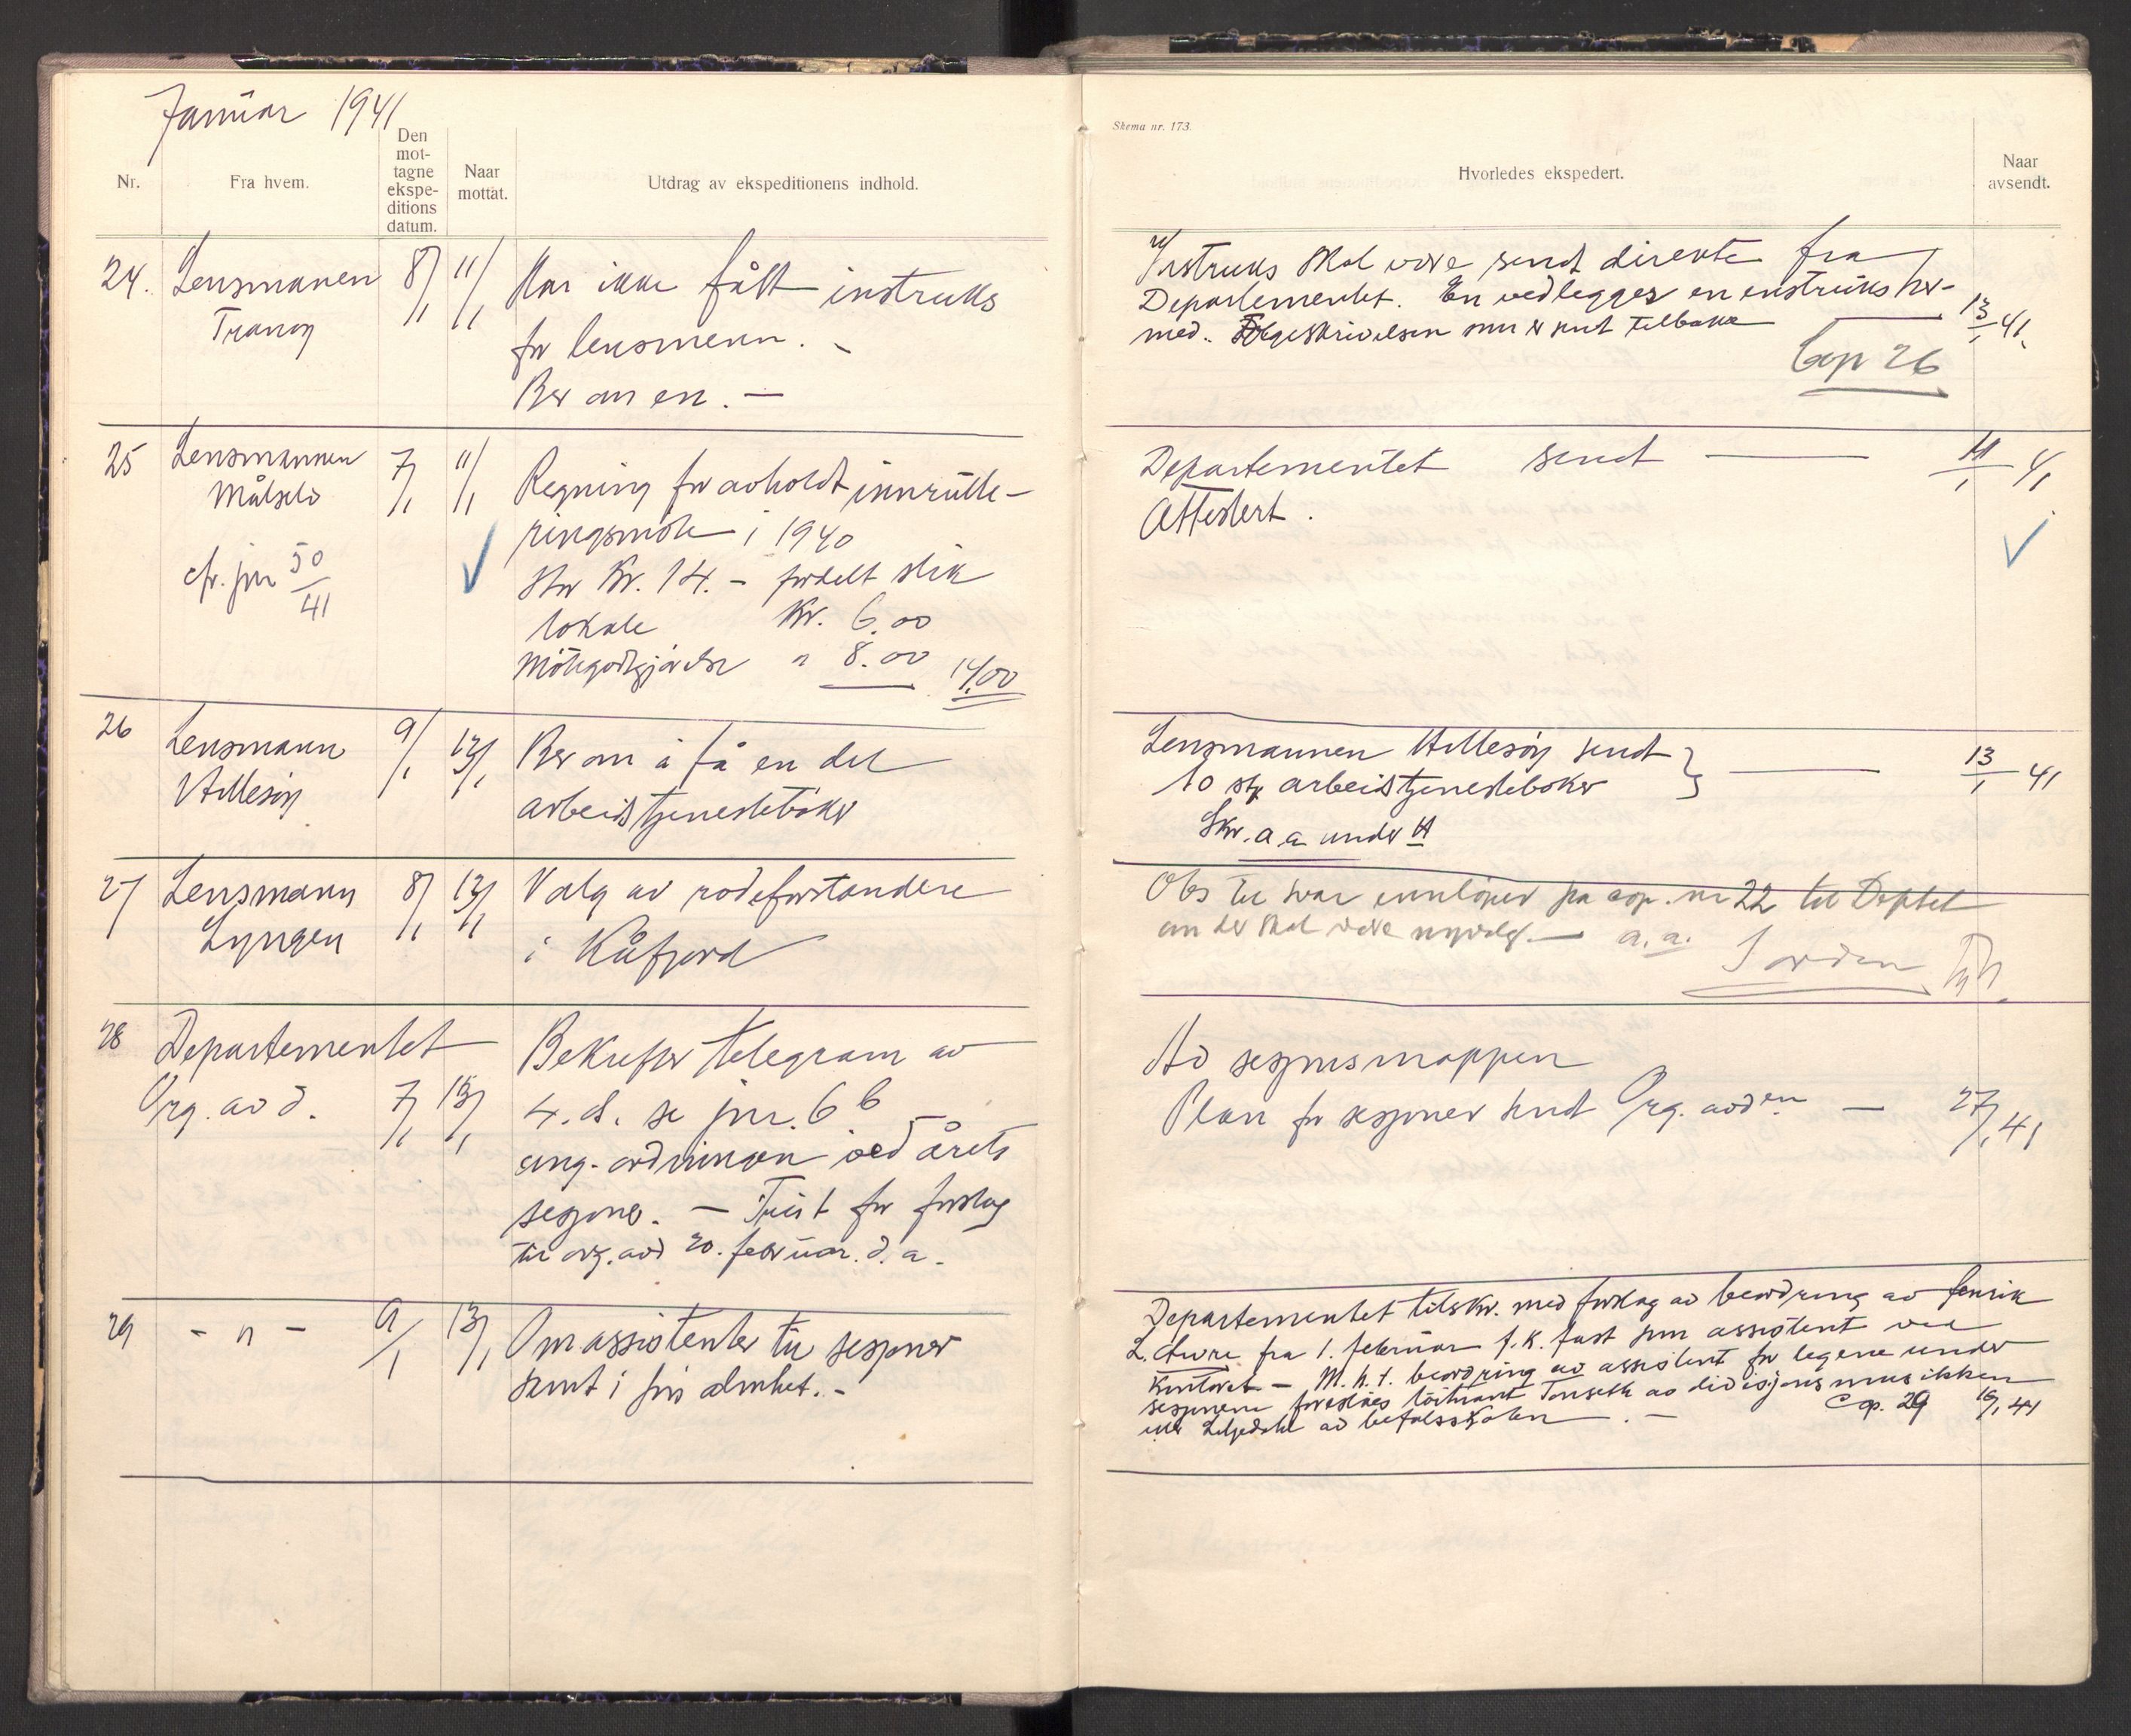 Januar 1941
Nr.
Fra hvem.
Den
mot-
tagne
ekspe-
ditions
datum.
Naar
mottat.
Utdrag av ekspeditionens indhold.
24. Lensmannen 8/1 11/1 Har ikke fått instruks
Tranøy
for lensmenn. -
Ber om en. -
25 Lensmannen 7/1 11/1 Regning for avholdt innrulle-
Målselv
ringsmöte i 1940
cfr. jnr 50/41
stor Kr. 14. - fordelt slik
lokale Kr. 6.00
Mötegodtgjörelse " 8.00 14.00
26 Lensmann 9/1 13/1 Ber om å få en del
Hillesöy
arbeidstjenesteböker
27 Lensmann 8/1 13/1 Valg av rodeforstandere
Lyngen
i Kåfjord
28 Departementet
Org. avd. 7/1 13/1
Bekrefter telegram av
4. ds. se jnr. 66
ang. ordningen ved årets
sesjoner. - Frist for forslag
til org. avd 20. februar. d. a.
29 - " - 9/1 13/1 Om assistenter til sesjoner
samt i sin almhet. -
Skema nr. 173.
Hvorledes ekspedert.
Naar
avsendt.
Instruks skal være sendt direkte fra
Departementet. En vedlegges en instruks her-
med. Fölgeskrivelsen som er sendt tilbake 13/1 41.
Cop 26
Departementet sendt 11/1 41
Attestert.
Lensmannen Hillesöy sendt
10 stk arbeidstjenesteböker 13/1 41
Skr. a a under H
Obs til svar innlöper på cop. nr 22 til Deptet
om der skal være nyvalg. - a.a.
I orden
Av sesjonsmappen
Plan for sesjoner sendt Org. avd en - 27/1 41
Departementet tilskr. med forslag av beordring av fenrik
L. fra 1. februar f.k. fast som assistent ved
kontoret - M.h.t. beordring av assistent for legene under
sesjonene foreslåes löitnant av divisjonsmusikken
eller Liljedahl av befalsskolen. - Cop. 29 16/1 41